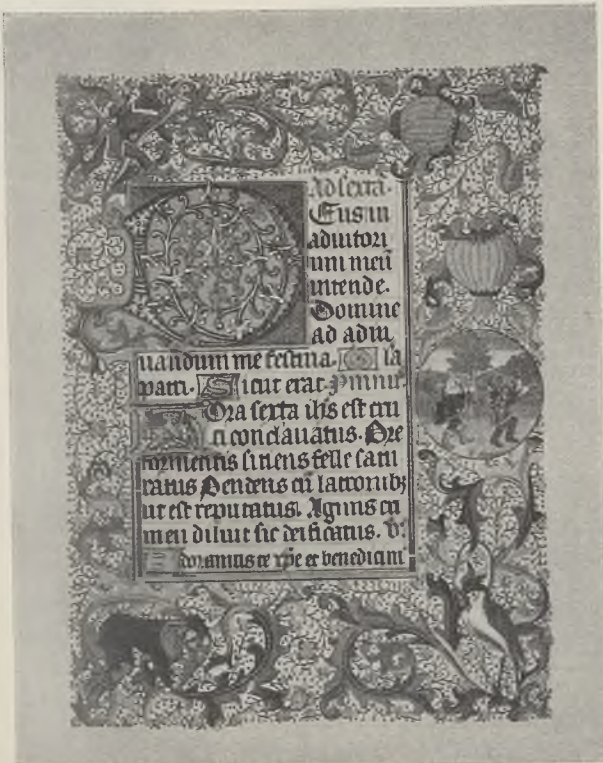 Ad sexta.
Eus in
adiutori
um meū
intende.
Domine
ad adiu
uandum me festina. Gla
patri. Sicut erat. ymnu.
Ora sexta ihs est cru
ci conclauatus. Pre
tormentis sitiens felle satu
ratus Pendens cū latronibz
ut est reputatus. Agnus cri
men diluit sic deificatus. v.
doramus te xpe et benedicim